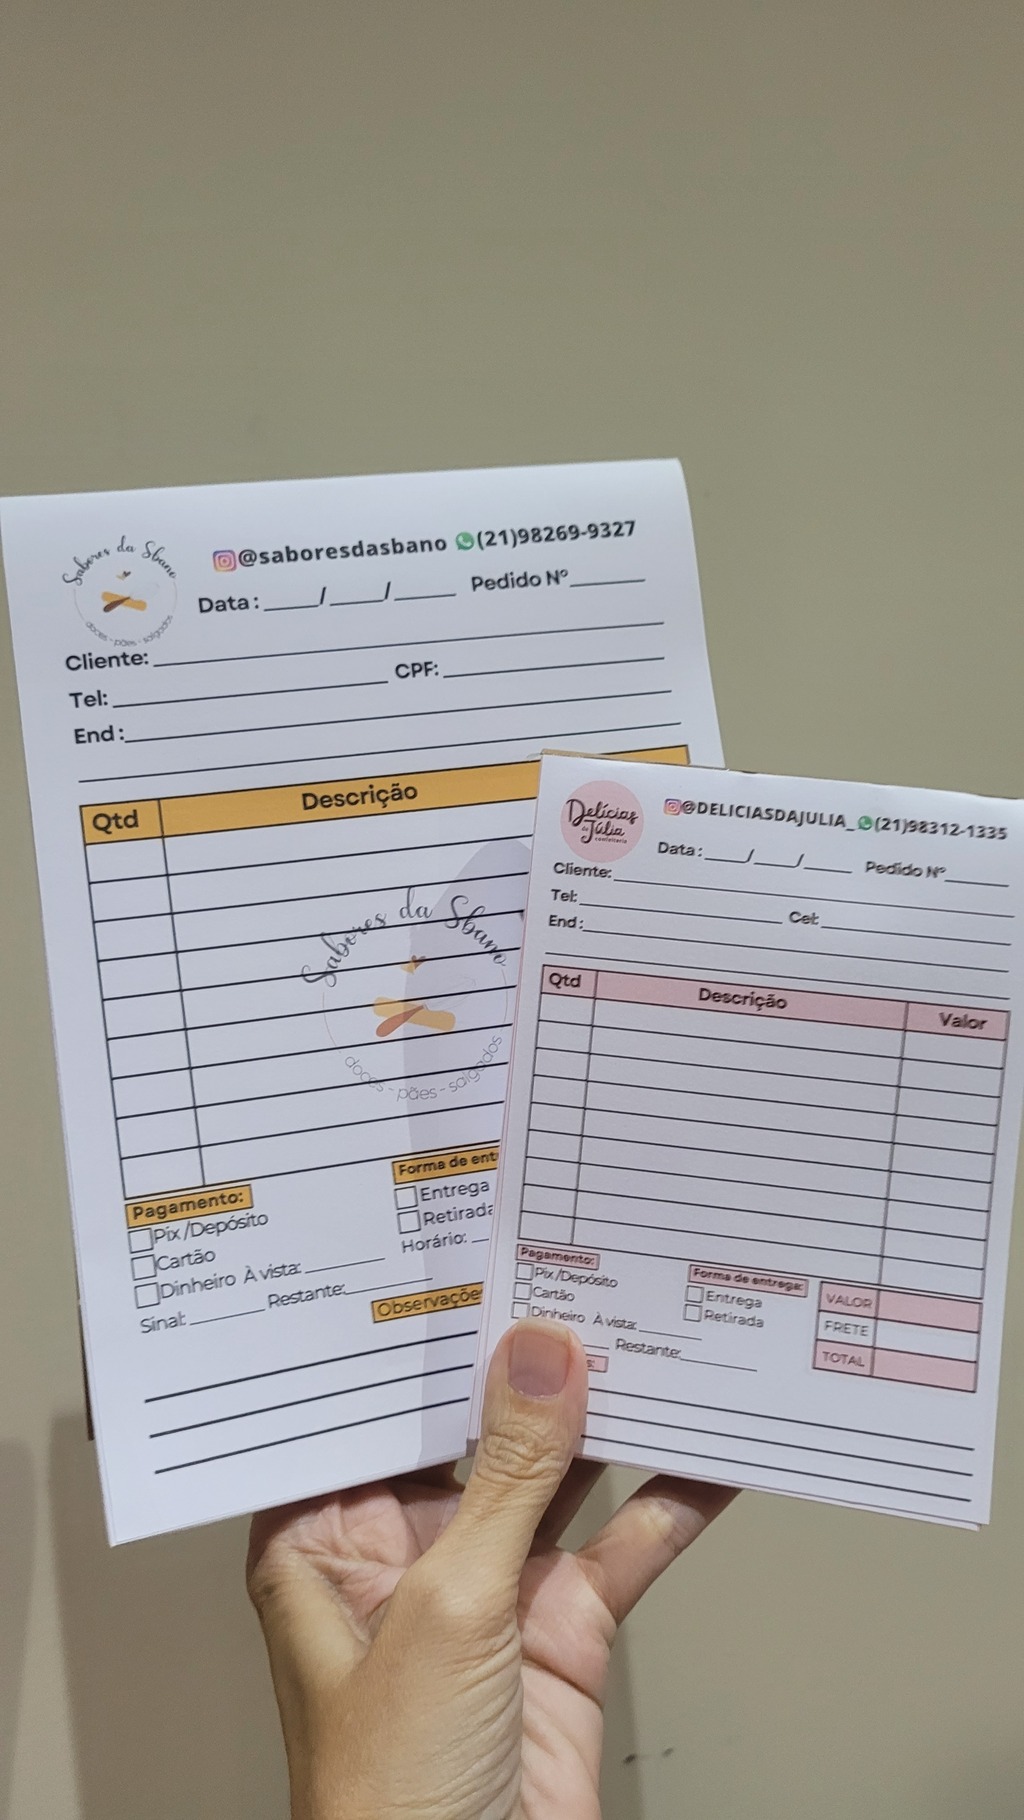 Sabores da Sbano
doces - pães - salgados
@saboresdasbano (21)98269-9327
Data: ____/____/____ Pedido Nº______
Cliente:
Tel: CPF:
End:
Qtd Descrição
Sabores da Sbano
doces - pães - salgados
Pagamento:
Pix/Depósito
Cartão
Dinheiro À vista:
Sinal: Restante:
Forma de ent
Entrega
Retirada
Horário:
Observaçõe
Delícias
da
Júlia
confeitaria
@DELICIASDAJULIA_ (21)98312-1335
Data: ____/____/____ Pedido Nº______
Cliente:
Tel: Cel:
End:
Qtd Descrição Valor
Pagamento:
Pix/Depósito
Cartão
Dinheiro À vista:
Restante:
s:
Forma de entrega:
Entrega
Retirada
VALOR
FRETE
TOTAL